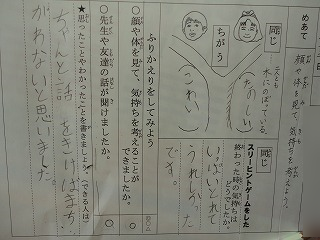 めあて
顔や体を見て、気持ちを考えよう。
同じ
二人とも
木にのぼっている。
ちがう
たのしい
こわい
同じ
スリーヒントゲームをした
終わった時の気持ちは
どうでしたか
いっぱいとれて
うれしかった
です。
ふりかえりをしてみよう
○顔や体を見て、気持ちを考えることが
できましたか。
○先生や友達の話が聞けましたか。
★思ったことやわかったことを書きましょう。（できる人は）
ちゃんと話をきけばまち
がわないと思いました。